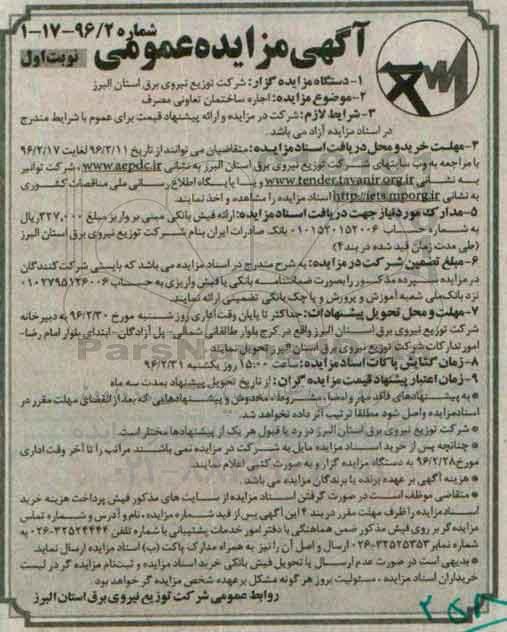 شماره ۹۶/۲-۱۷-۱
آگهی مزایده عمومی
نوبت اول
۱- دستگاه مزایده گزار: شرکت توزیع نیروی برق استان البرز
۲-موضوع مزایده: اجاره ساختمان تعاونی مصرف
۳-شرایط لازم: شرکت در مزایده و ارائه پیشنهاد قیمت برای عموم با شرایط مندرج
در اسناد مزایده آزاد می باشد.
۴-مهلت خرید و محل دریافت اسناد مزایده: متقاضیان می توانند از تاریخ ۹۶/۲/۱۱ لغایت ۹۶/۲/۱۷
با مراجعه به وب سایتهای شرکت توزیع نیروی برق استان البرز به نشانی www.aepdc.ir، شرکت توانیر
به نشانی www.tender.tavanir.org.ir و یا پایگاه اطلاع رسانی ملی مناقصات کشوری
به نشانی http://iets.mporg.ir اسناد مزایده را مشاهده و اخذ نمایند.
۵-مدارک مورد نیاز جهت دریافت اسناد مزایده: ارائه فیش بانکی مبنی بر واریز مبلغ ۳۲۷,۰۰۰ ریال
به شماره حساب ۰۱۰۱۵۲۰۱۵۲۰۰۶ بانک صادرات ایران بنام شرکت توزیع نیروی برق استان البرز
(طی مدت زمان قید شده در بند۴)
۶-مبلغ تضمین شرکت در مزایده: به شرح مندرج در اسناد مزایده می باشد که بایستی شرکت کنندگان
در مزایده سپرده مذکور را بصورت ضمانتنامه بانکی یا فیش واریزی به حساب ۰۱۰۲۷۹۵۱۲۶۰۰۶
نزد بانک ملی شعبه آموزش و پرورش و یا چک بانکی تضمینی ارائه نمایند.
۷-مهلت و محل تحویل پیشنهادات: حداکثر تا پایان وقت اداری روز شنبه مورخ ۹۶/۲/۳۰ به دبیرخانه
شرکت توزیع نیروی برق استان البرز واقع در کرج بلوار طالقانی شمالی- پل آزادگان-ابتدای بلوار امام رضا-
امور تدارکات شرکت توزیع نیروی برق استان البرز تحویل نمایند
۸-زمان گشایش پاکات اسناد مزایده: ساعت ۱۵:۰۰ روز یکشنبه ۹۶/۲/۳۱
۹-زمان اعتبار پیشنهاد قیمت مزایده گران: از تاریخ تحویل پیشنهاد بمدت سه ماه
* به پیشنهادهای فاقد مهر و امضا، مشروط، مخدوش و پیشنهادهایی که بعد از انقضای مهلت مقرر در
اسناد مزایده واصل شود مطلقا ترتیب اثر داده نخواهد شد.
* شرکت توزیع نیروی برق استان البرز در رد یا قبول هر یک از پیشنهادها مختار است.
* چنانچه پس از خرید اسناد مزایده مایل به شرکت در مزایده نمی باشند مراتب را تا آخر وقت اداری
مورخ ۹۶/۲/۲۸ به دستگاه مزایده گزار و به صورت کتبی اعلام نمایند.
* هزینه آگهی بر عهده برنده یا برندگان مزایده می باشد.
* متقاضی موظف است در صورت گرفتن اسناد مزایده از سایت های مذکور فیش پرداخت هزینه خرید
اسناد مزایده را ظرف مهلت مقرر در بند ۴ این آگهی پس از قید شماره مزایده، نام و آدرس و شماره تماس
مزایده گر بر روی فیش مذکور ضمن هماهنگی با دفتر امور خدمات پشتیبانی با شماره تلفن ۳۲۵۲۴۴۴۴-۰۲۶
به شماره نمابر ۳۲۵۲۵۳۵۳-۰۲۶ ارسال و اصل آن را نیز به همراه مدارک پاکت (ب) اسناد مزایده ارسال نماید.
* بدیهی است در صورت عدم ارسال یا تحویل فیش بانکی خرید اسناد مزایده و ثبت نام مزایده گر در لیست
خریداران اسناد مزایده، مسئولیت بروز هر گونه مشکل بر عهده شخص مزایده گر خواهد بود.
روابط عمومی شرکت توزیع نیروی برق استان البرز